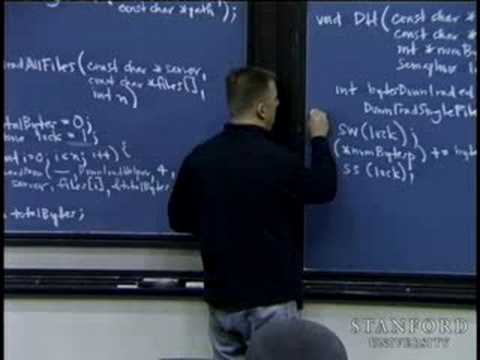 const char *path);
loadAllFiles(const char *server,
const char *files[],
int n)
totalBytes = 0;
lock = 1;
int i=0; i<n; i++) {
DownloadHelper, 4,
server, files[i], &totalBytes
totalBytes;
void DH(const char *
const char *
int *numBy
Semaphore l
int bytesDownloaded
DownloadSingleFile
SW(lock);
(*numBytesp) += byte
SS(lock);
STANFORD
UNIVERSITY